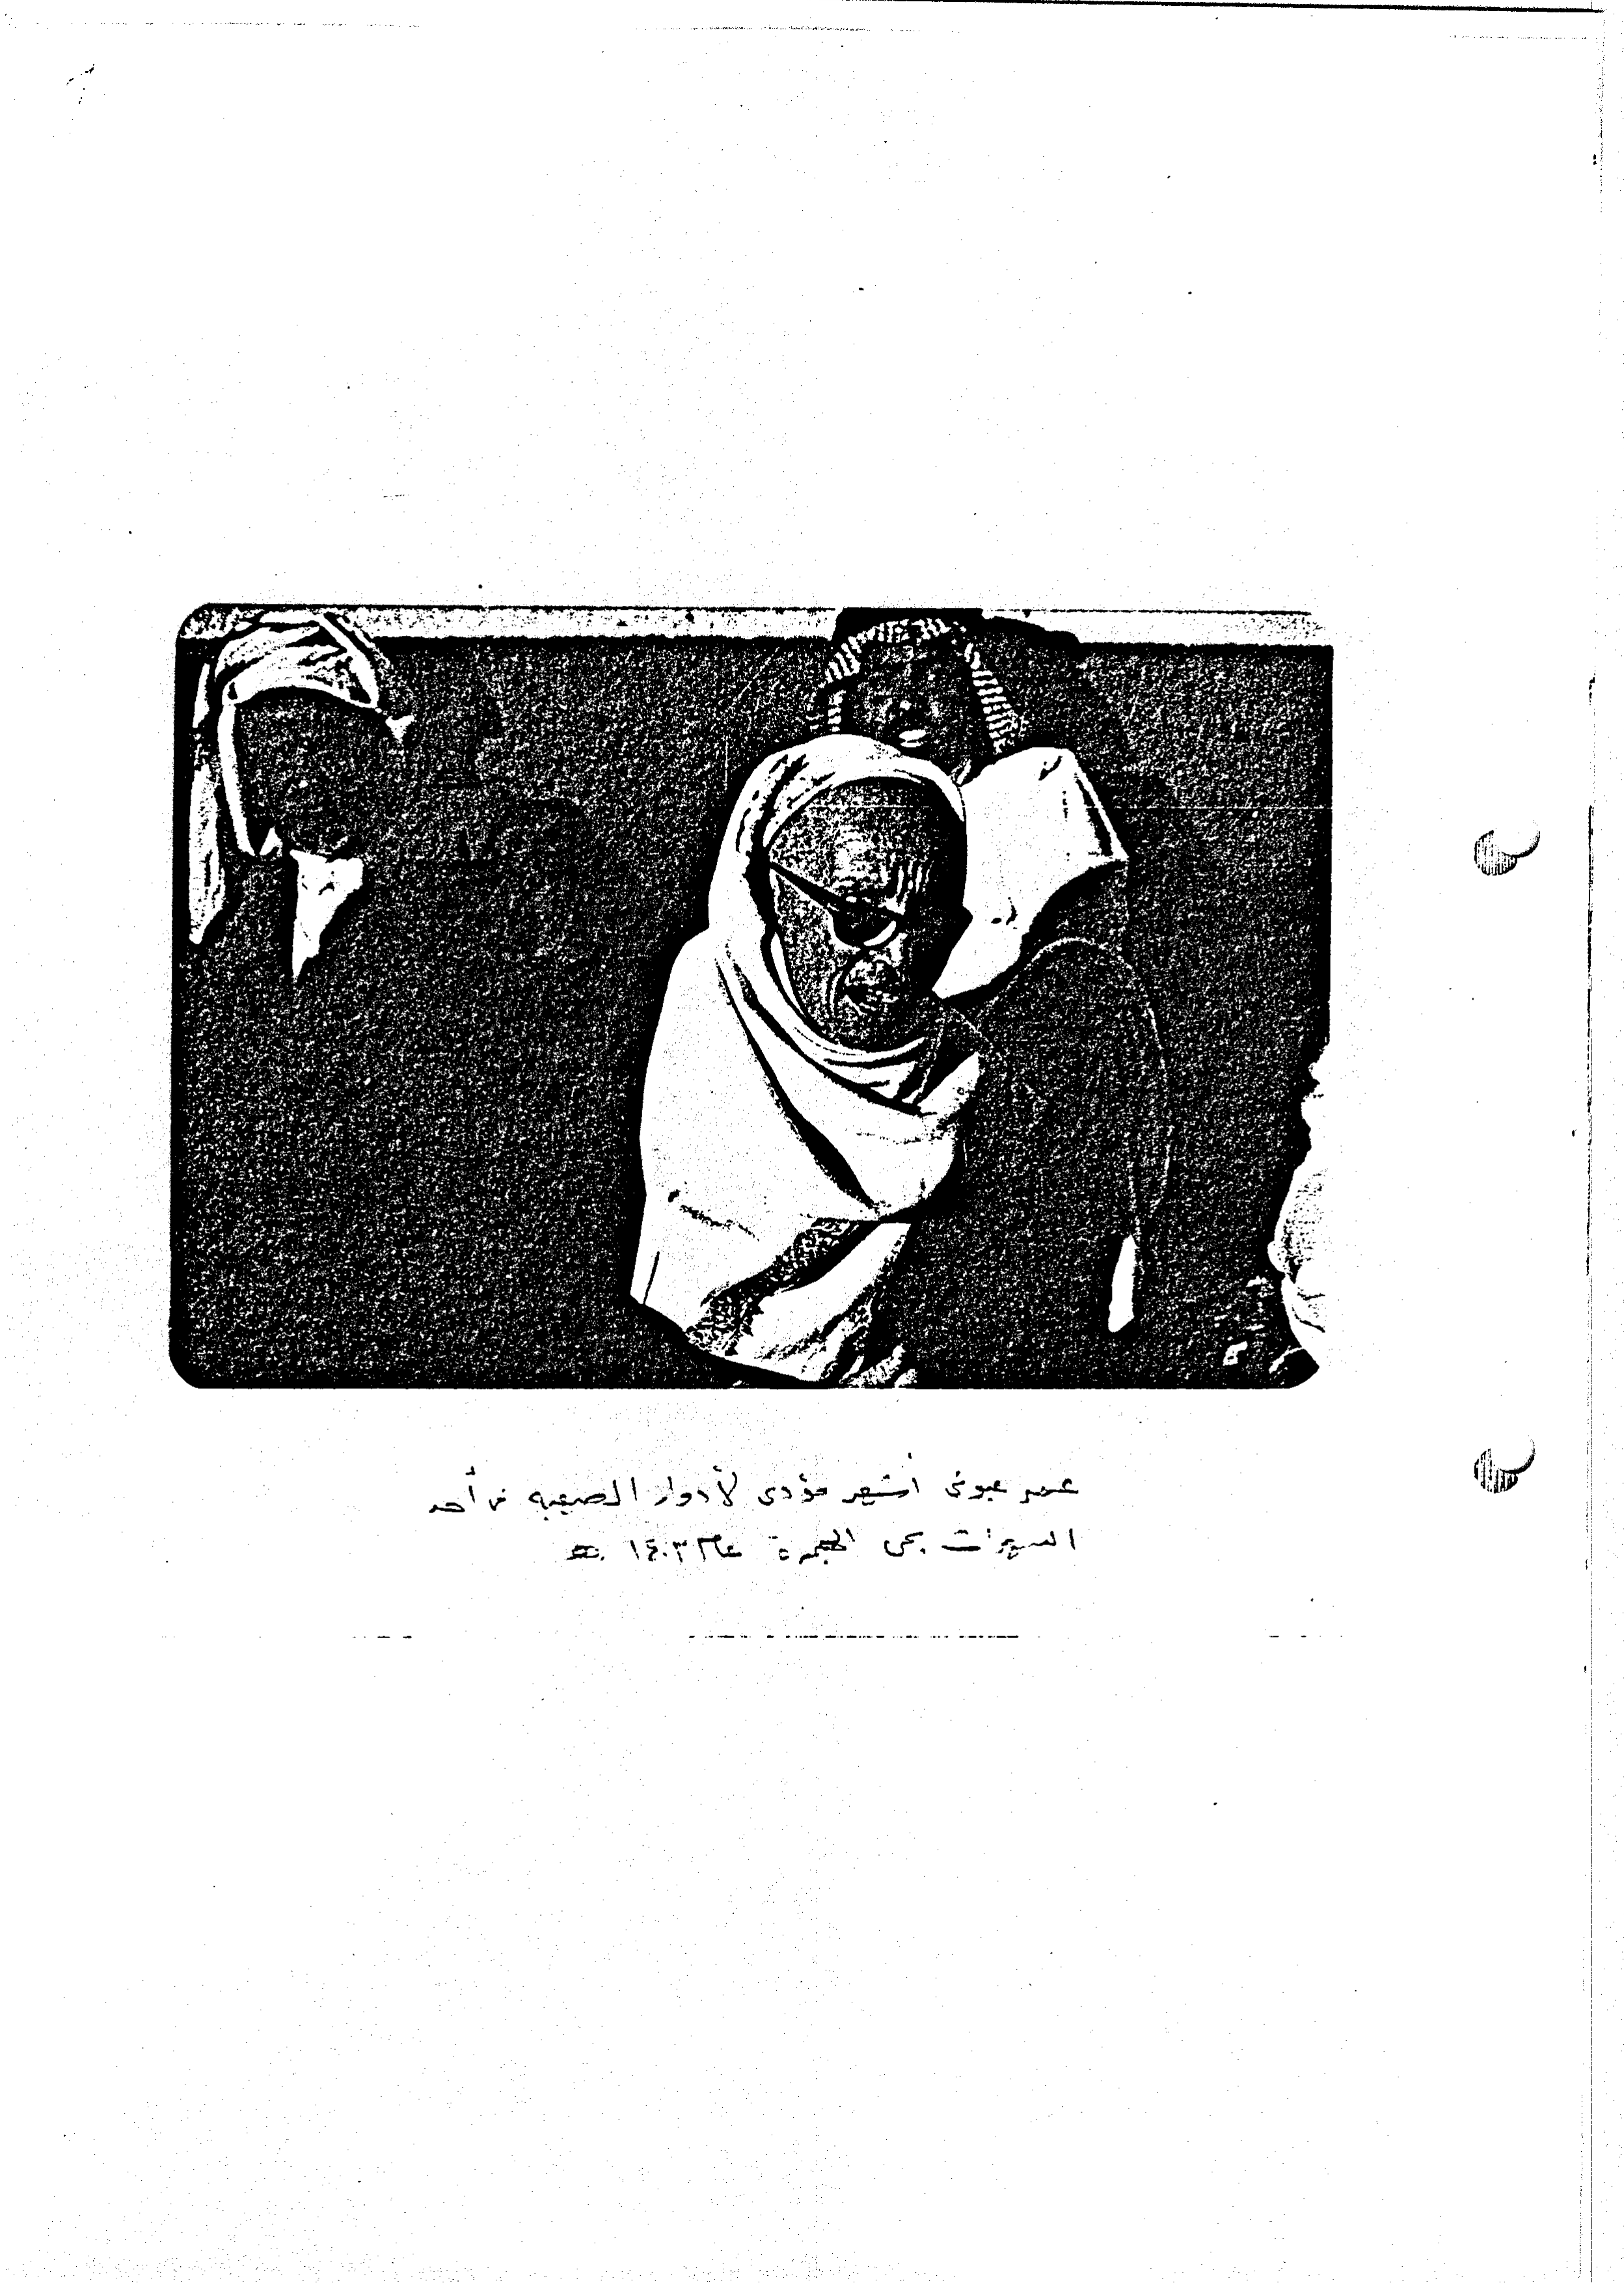 عمر عيوني أشهر مؤدى لأدوار الصعبه فى أحد
السهرات بحى الهجرة عام ١٤٠٣ هـ